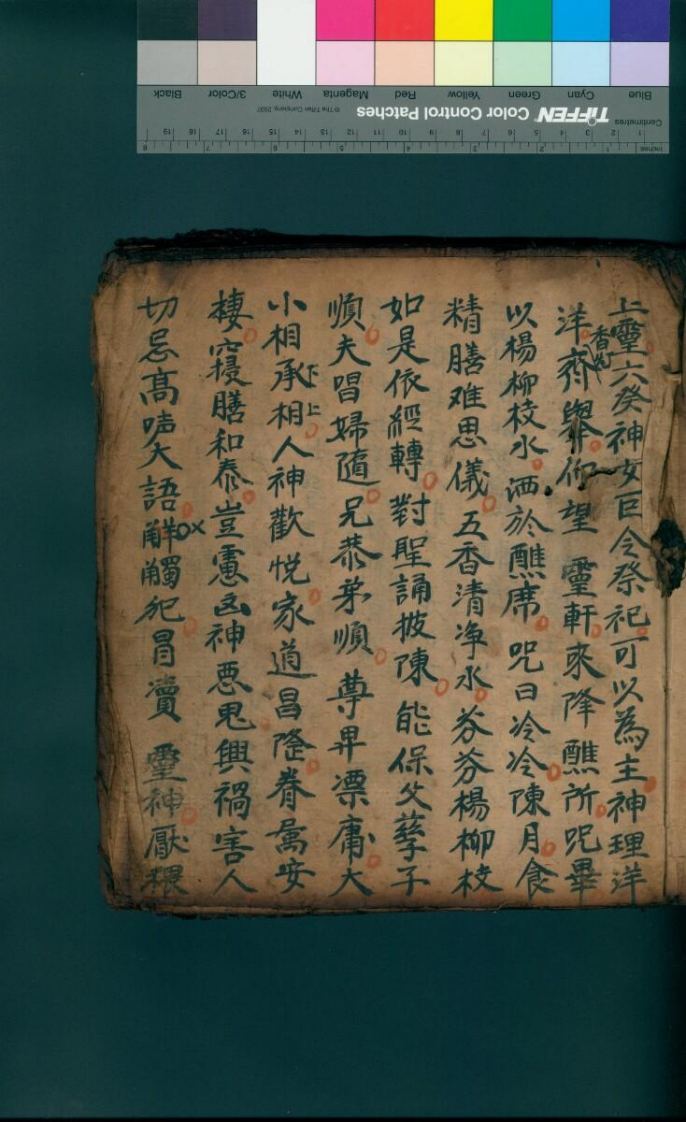 上靈六癸神女巨今祭祀可以為主神理洋
洋齊舉仰望靈軒來降醮所咒畢
香灼
以楊柳枝水洒於醮席咒曰冷冷陳月食
精膳难思儀五香清净水芬芬楊柳枝
如是依經轉對聖誦披陳能保父慈子
順夫唱婦隨兄恭弟順尊卑凛庸大
小相承相人神歡悅家道昌隆眷屬安
下上
棲寢膳和泰豈慮凶神惡鬼興禍害人
切忌高声大語觧觸犯冒瀆靈神厭穢
Blue
Cyan
Green
Yellow
Red
Magenta
White
3/Color
Black
TIFFEN Color Control Patches
© The Tiffen Company, 2007
Centimetres
Inches